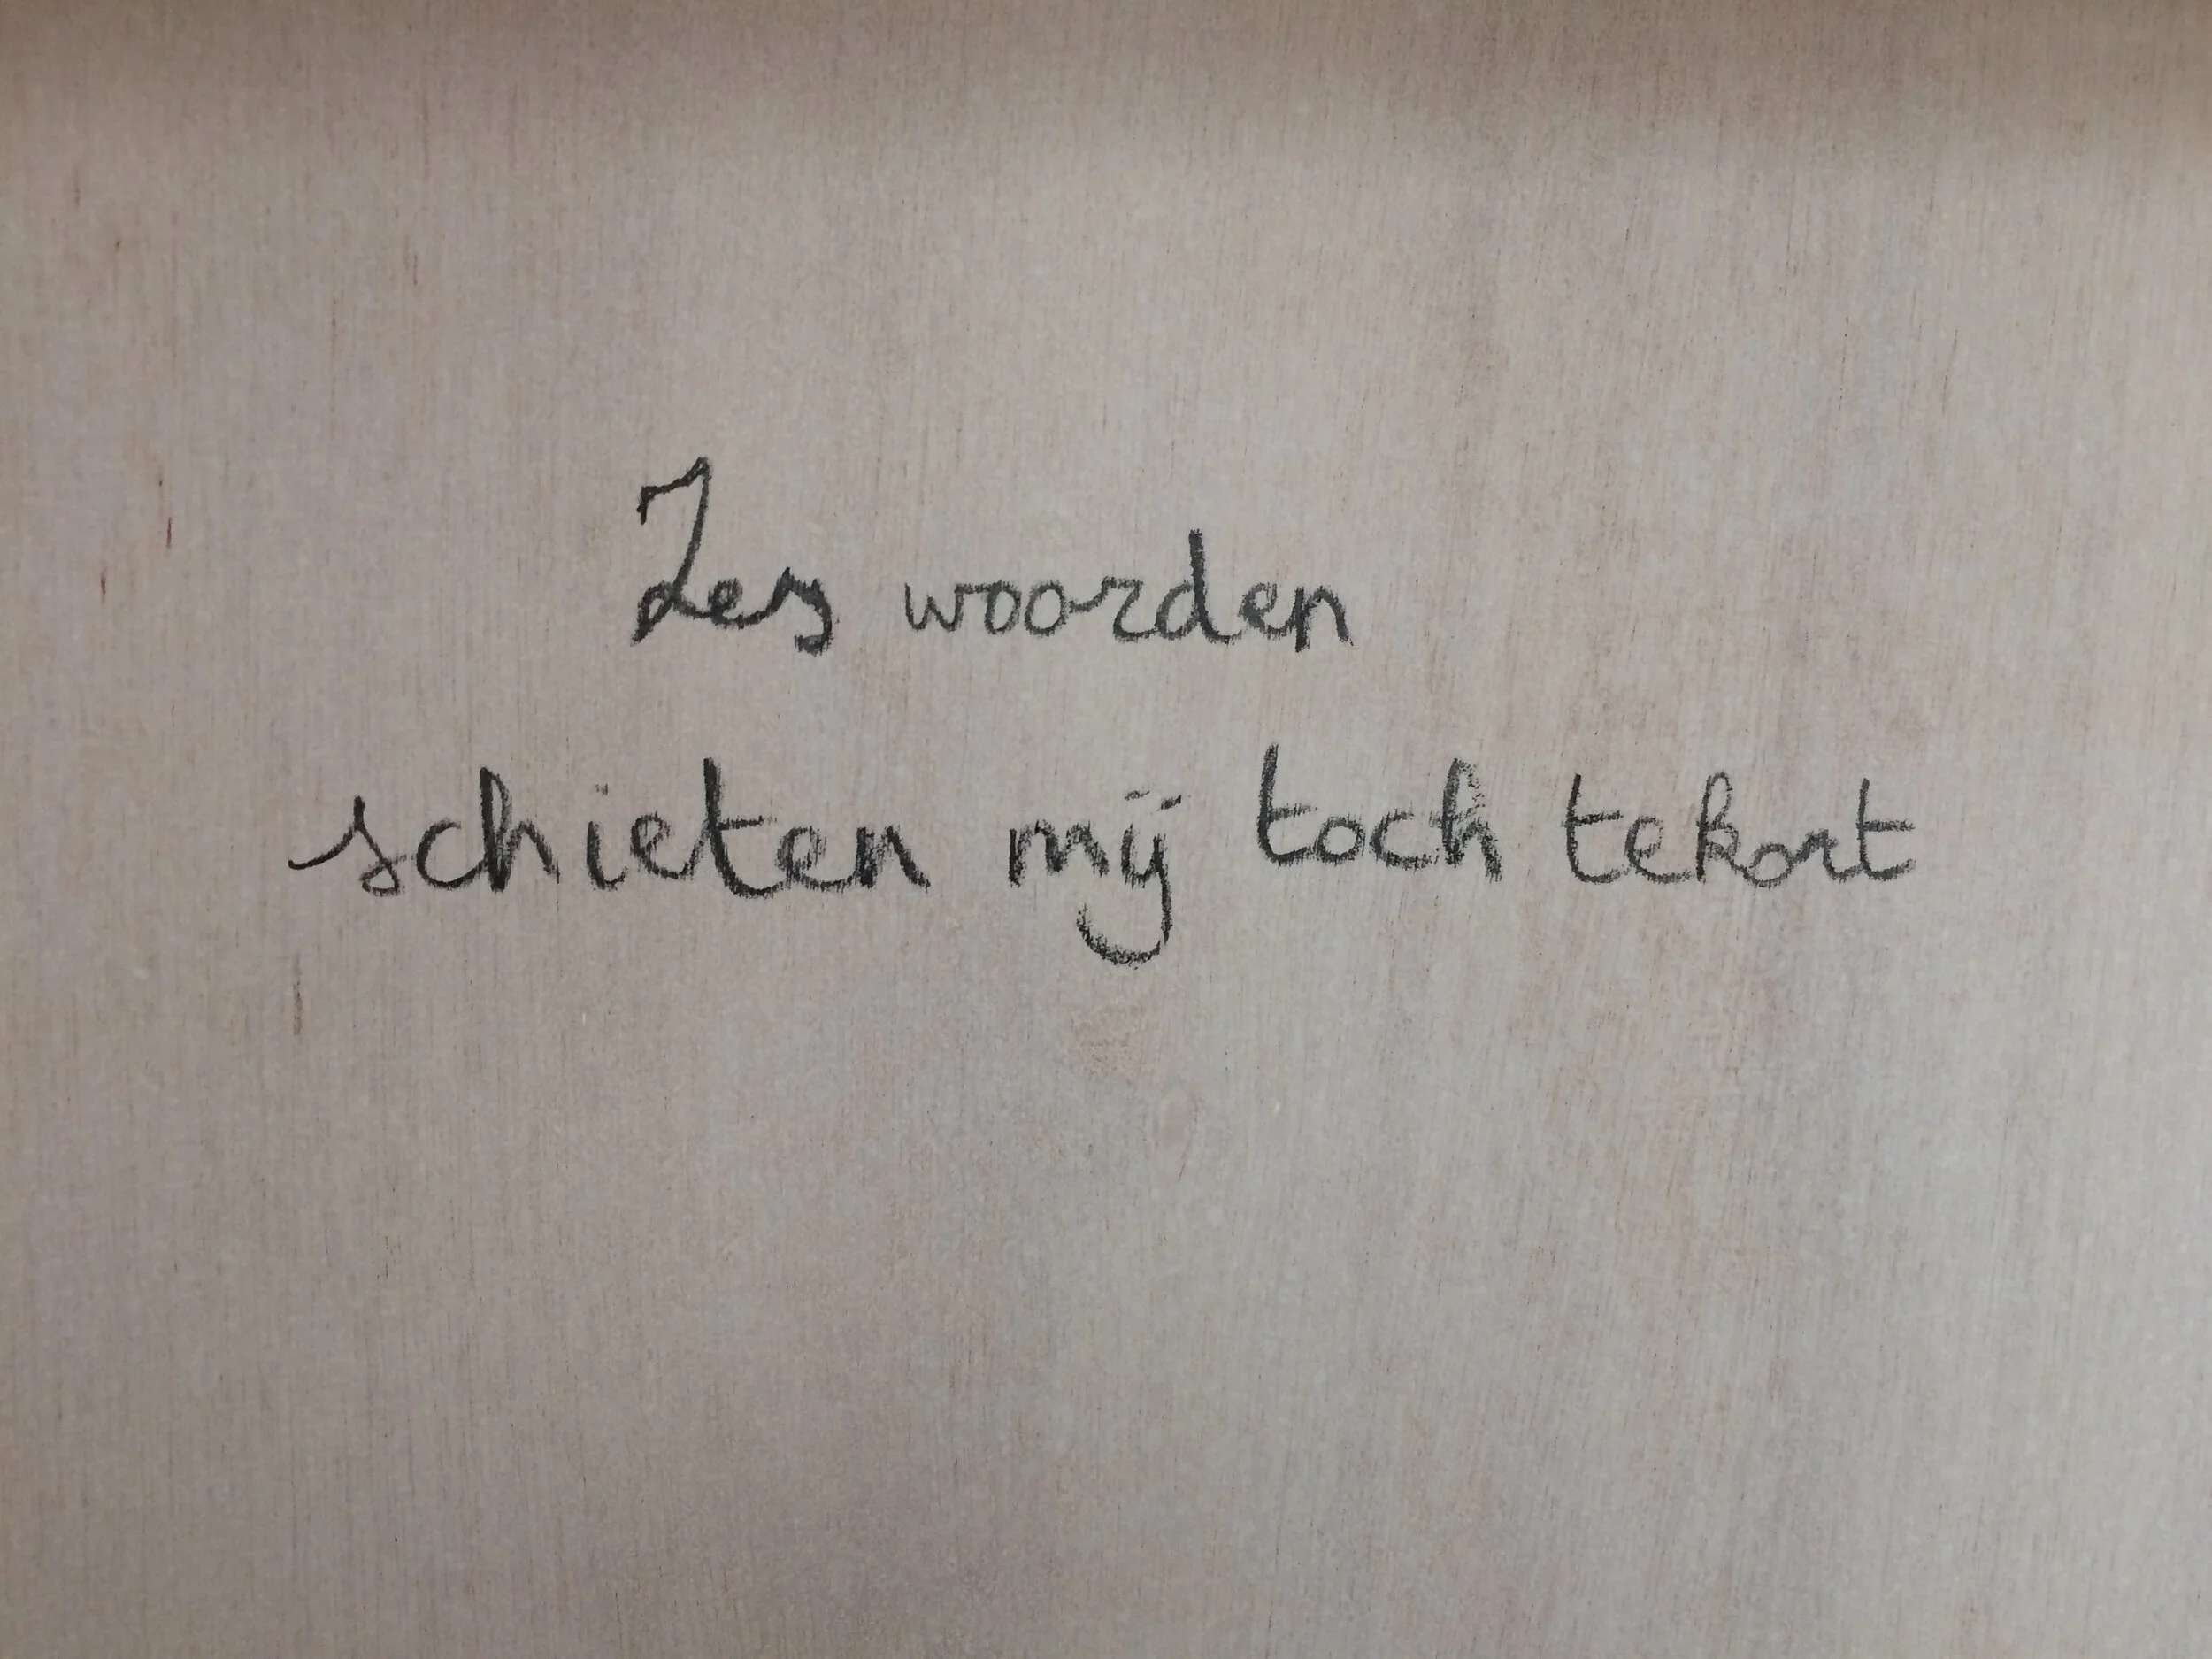 Zes woorden
schieten mij toch tekort